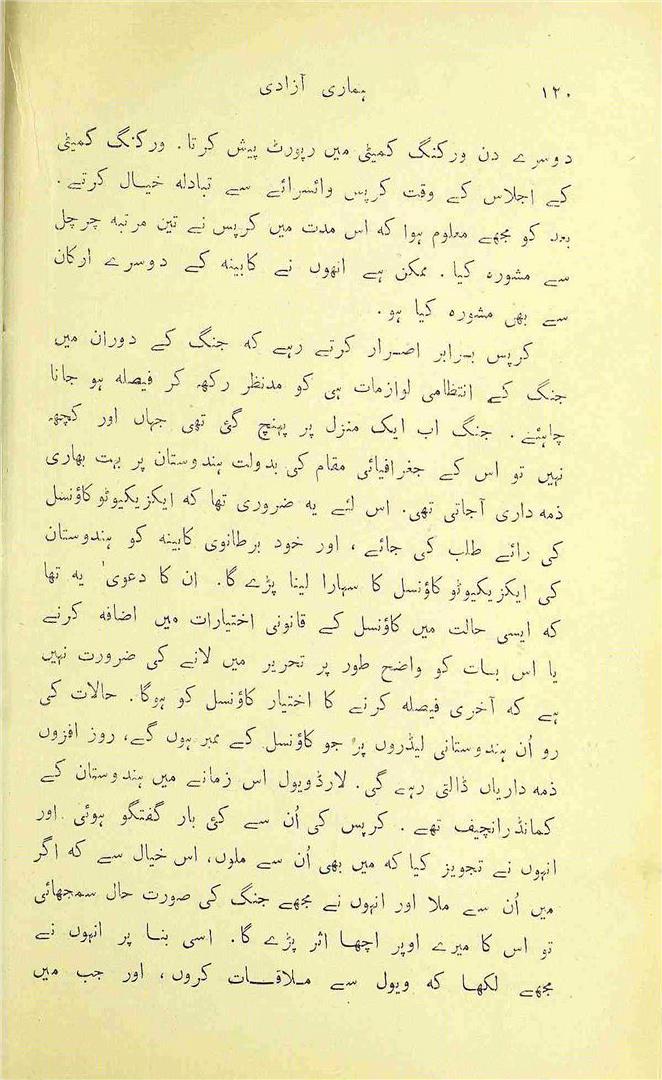 ۱۲۰ ہماری آزادی
دوسرے دن ورکنگ کمیٹی میں رپورٹ پیش کرتا۔ ورکنگ کمیٹی
کے اجلاس کے وقت کرپس وائسرائے سے تبادلہ خیال کرتے۔
بعد کو مجھے معلوم ہوا کہ اس مدت میں کرپس نے تین مرتبہ چرچل
سے مشورہ کیا۔ ممکن ہے انھوں نے کابینہ کے دوسرے ارکان
سے بھی مشورہ کیا ہو۔
کرپس برابر اصرار کرتے رہے کہ جنگ کے دوران میں
جنگ کے انتظامی لوازمات ہی کو مدنظر رکھہ کر فیصلہ ہو جانا
چاہئے۔ جنگ اب ایک منزل پر پہنچ گئی تھی جہاں اور کچھہ
نہیں تو اس کے جغرافیائی مقام کی بدولت ہندوستان پر بہت بھاری
ذمہ داری آجاتی تھی۔ اس لئے یہ ضروری تھا کہ ایکزیکیوٹو کاؤنسل
کی رائے طلب کی جائے، اور خود برطانوی کابینہ کو ہندوستان
کی ایکزیکیوٹو کاؤنسل کا سہارا لینا پڑے گا۔ ان کا دعویٰ یہ تھا
کہ ایسی حالت میں کاؤنسل کے قانونی اختیارات میں اضافہ کرنے
یا اس بات کو واضح طور پر تحریر میں لانے کی ضرورت نہیں
ہے کہ آخری فیصلہ کرنے کا اختیار کاؤنسل کو ہوگا۔ حالات کی
رو اُن ہندوستانی لیڈروں پر جو کاؤنسل کے ممبر ہوں گے، روز افزوں
ذمہ داریاں ڈالتی رہے گی۔ لارڈ ویول اس زمانے میں ہندوستان کے
کمانڈر انچیف تھے۔ کرپس کی اُن سے کئی بار گفتگو ہوئی اور
انہوں نے تجویز کیا کہ میں بھی اُن سے ملوں، اس خیال سے کہ اگر
میں اُن سے ملا اور انہوں نے مجھے جنگ کی صورت حال سمجھائی
تو اس کا میرے اوپر اچھا اثر پڑے گا۔ اسی بنا پر انہوں نے
مجھے لکھا کہ ویول سے ملاقات کروں، اور جب میں